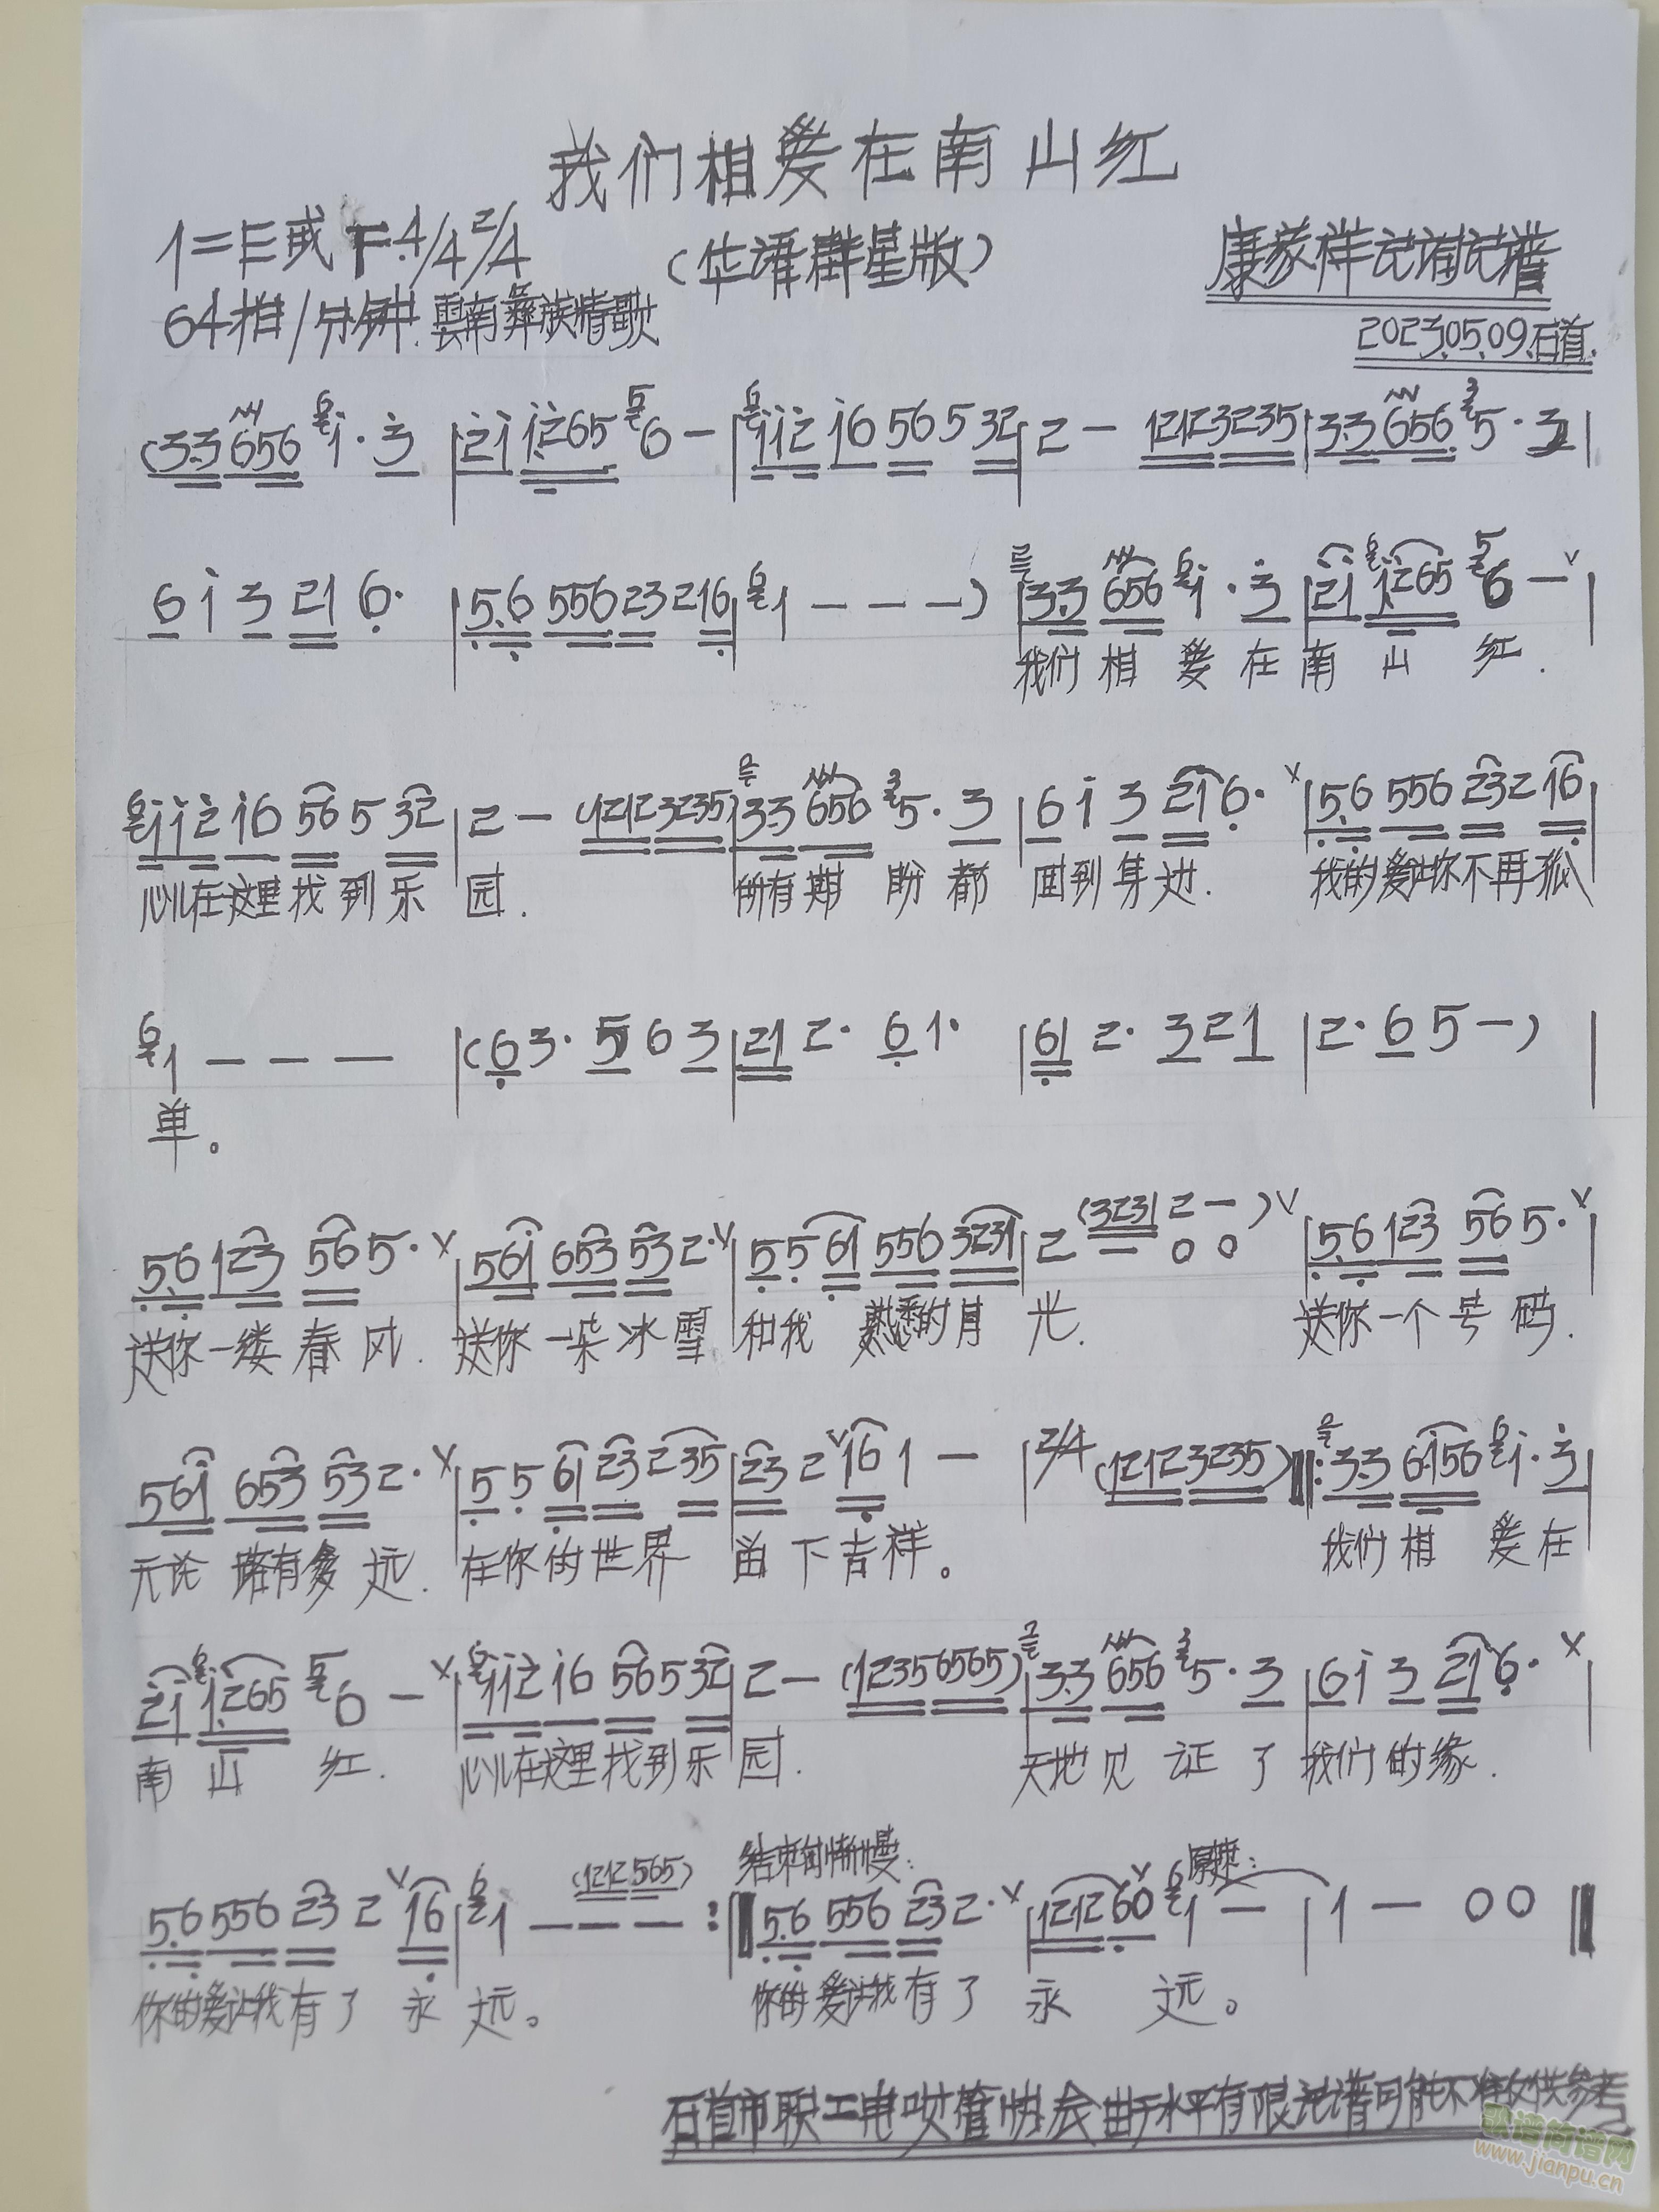 我们相爱在南山红
1=E或F 4/4 2/4 (华语群星版) 康家祥记谱
64拍/分钟 雲南彝族情歌 2023.05.09.石首.
(3.3 656 i· 3 | 2i i265 6 - | ii2 i6 56 5 32 | 2 - 12123235 | 3.3 656 5· 3 |
6 i 3 21 6· | 5.6 556 23 216 | 1 - - - ) | 3.3 656 i· 3 | 2i i265 6 - v |
我们相爱在南山红.
ii2 i6 56 5 32 | 2 - (12123235) | 3.3 656 5· 3 | 6 i 3 21 6· v | 5.6 556 23 2 16 |
心儿在这里找到乐园. 所有期盼都回到身边. 我的爱让你不再孤
1 - - - | (6 3· 5 6 3 | 21 2· 6 1· | 61 2· 3 2 1 | 2· 6 5 - ) |
单。
5.6 123 56 5· v | 56i 653 53 2· v | 5 5 61 556 3231 | 2 (3231 2 - ) v | 5.6 123 56 5· v |
0 0
送你一缕春风. 送你一朵冰雪 和我熟悉的月光. 送你一个号码.
56i 653 53 2· v | 5 5 61 23 2 35 | 23 2 v 16 1 - | 2/4 (12123235) ‖: 3.3 6i56 i· 3 |
无论路有多远. 在你的世界留下吉祥。 我们相爱在
2i i265 6 - v | ii2 i6 56 5 32 | 2 - (12356565) | 3.3 656 5· 3 | 6 i 3 21 6· v |
南山红. 心儿在这里找到乐园. 天地见证了我们的缘.
(1212 565) 结束句渐慢: 原速:
5.6 556 23 2 v 16 | 1 - - - :‖ 5.6 556 23 2· v | 1212 60 1 - | 1 - 0 0 ‖
你的爱让我有了永远。 你的爱让我有了永远。
石首市职工电吹管协会由于水平有限记谱可能不准仅供参考
歌谱简谱网
www.jianpu.cn